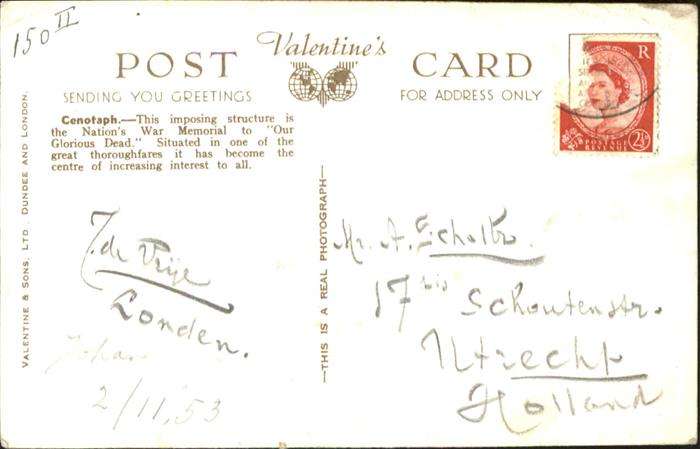 150 II
Valentine's
POST CARD
SENDING YOU GREETINGS
FOR ADDRESS ONLY
Cenotaph.—This imposing structure is
the Nation's War Memorial to "Our
Glorious Dead." Situated in one of the
great thoroughfares it has become the
centre of increasing interest to all.
VALENTINE & SONS, LTD. DUNDEE AND LONDON.
—THIS IS A REAL PHOTOGRAPH—
de Vrije
Londen.
Johan
2/11,53
E R
POSTAGE
REVENUE
2½D
Mr. A. Scholtz.
17 bis Schoutenstr.
Utrecht
Holland